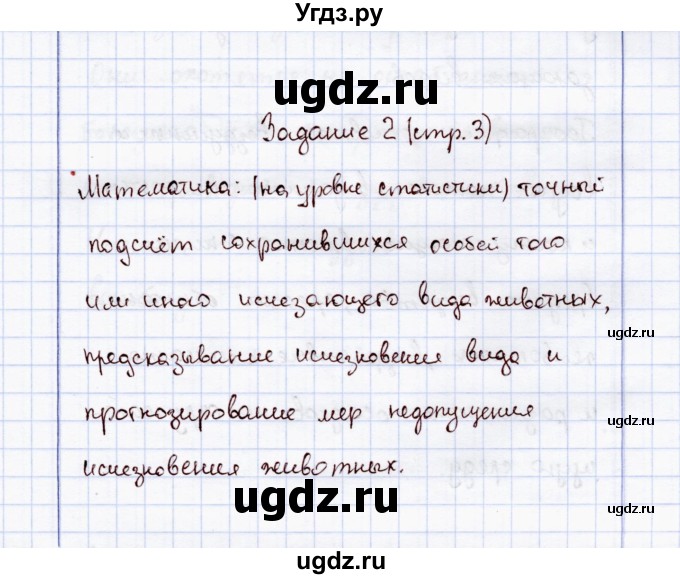 Угдз.ру
ugdz.ru
Задание 2 (стр. 3)
Математика: (на уровне статистики) точный
подсчёт сохранившихся особей того
или иного исчезающего вида животных,
ugdz.ru
предсказывание исчезновения вида и
прогнозирование мер недопущения
ugdz.ru
исчезновения животных.
ugdz.ru
ugdz.ru